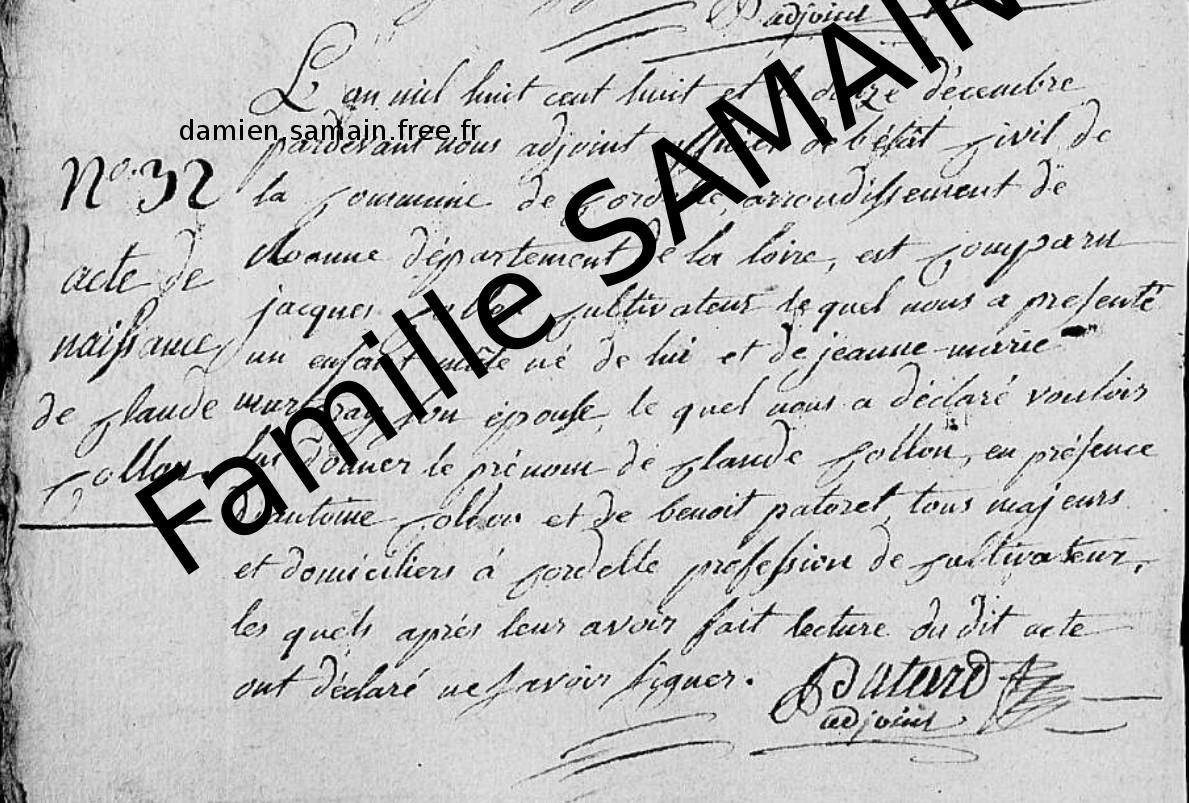 adjoint
L'an mil huit cent huit et le douze décembre
damien.samain.free.fr
pardevant nous adjoint officier de l'état civil de
la commune de Cordelle, arrondissement de
Roanne département de la loire, est comparu
jacques Collon cultivateur le quel nous a presenté
un enfant mâle né de lui et de jeanne marie
son épouse, le quel nous a déclaré vouloir
lui donner le prénom de Claude Collon, en présence
d'antoine Collon et de benoit patoret, tous majeurs
et domiciliers à Cordelle profession de Cultivateur,
les quels après leur avoir fait lecture du dit acte
ont déclaré ne savoir signer.
adjoint
N.º 32
acte de
naissance
de Claude
Collon
Famille SAMAIN